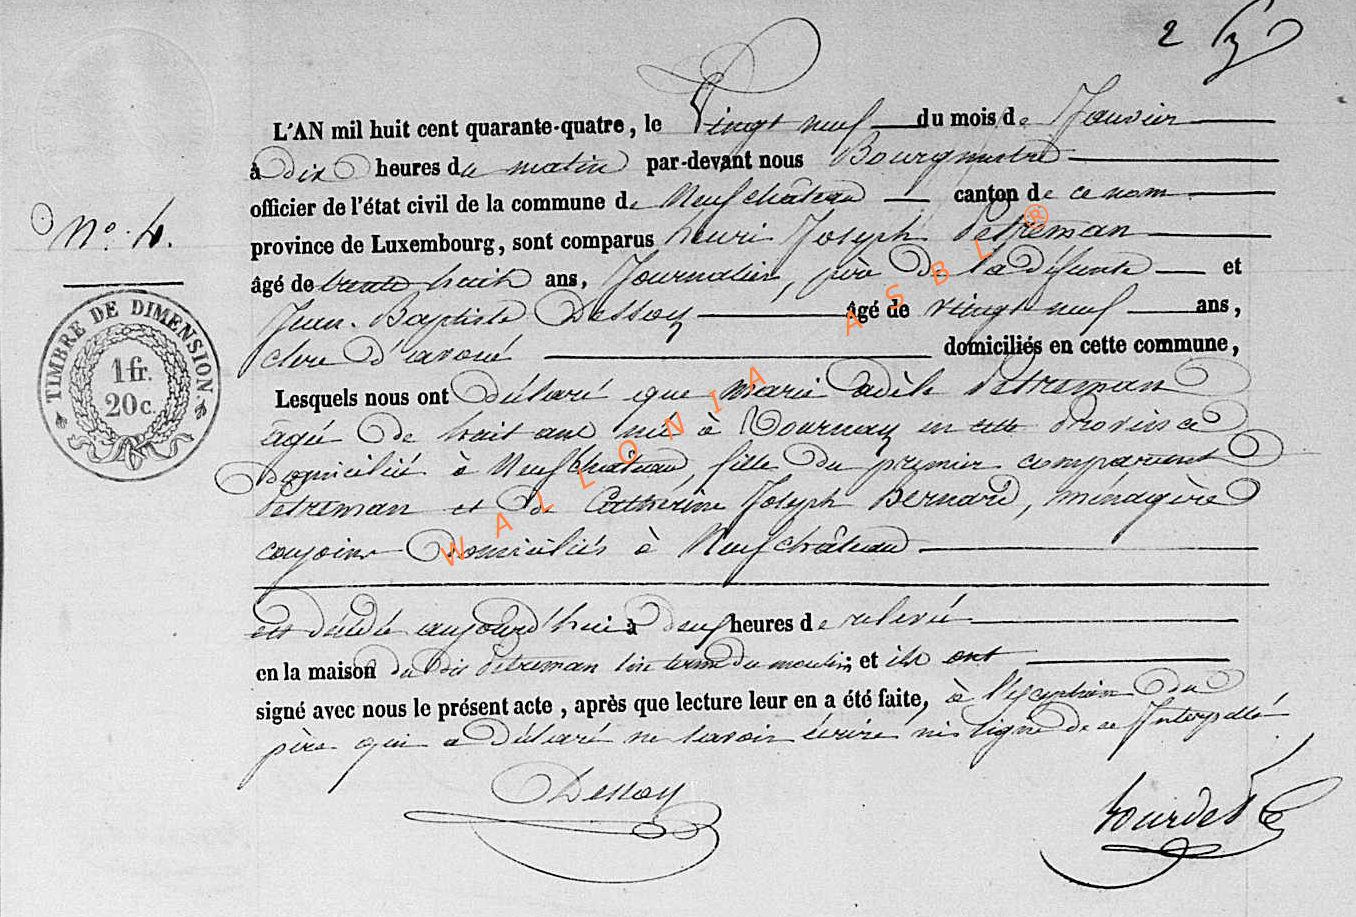 2
L'AN mil huit cent quarante-quatre, le Vingt neuf du mois de Janvier
à dix heures du matin par-devant nous Bourgmestre
officier de l'état civil de la commune de Neufchâteau canton de ce nom
No. 4.
province de Luxembourg, sont comparus henri Joseph Petreman
âgé de trente huit ans, Journalier, père de la défunte et
Jean-Baptiste Dessoy âgé de vingt neuf ans,
clerc d'avoué domiciliés en cette commune,
TIMBRE DE DIMENSION.
1 fr.
20 c.
Lesquels nous ont déclaré que marie Adèle Petreman
agée de huit ans née à Tournay en cette Province
Domiciliée à Neufchateau, fille du premier comparant
Petreman et de Catherine Joseph Bernard, ménagère
conjoins Domiciliés à Neufchâteau
est décédée aujourd'hui à deux heures de relevé
en la maison du dit Petreman ; et ils ont
signé avec nous le présent acte, après que lecture leur en a été faite, à l'exception du
père qui a déclaré ne savoir écrire ni signé de ce Interpellé
Dessoy
WALLONIA ASBL ®